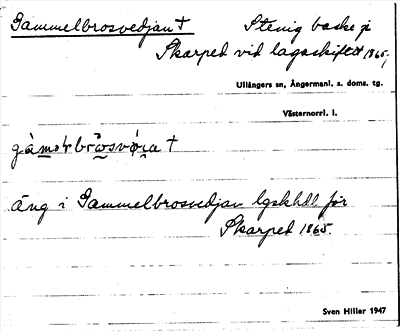 Gammelbrosvedjan † Stenig backe på
Skarped vid lagaskiftet 1865;
Ullångers sn, Ångermanl. s. doms. tg.
Västernorrl. l.
†
äng i Gammelbrosvedjan lgskhdl för
Skarped 1865.
Sven Hiller 1947